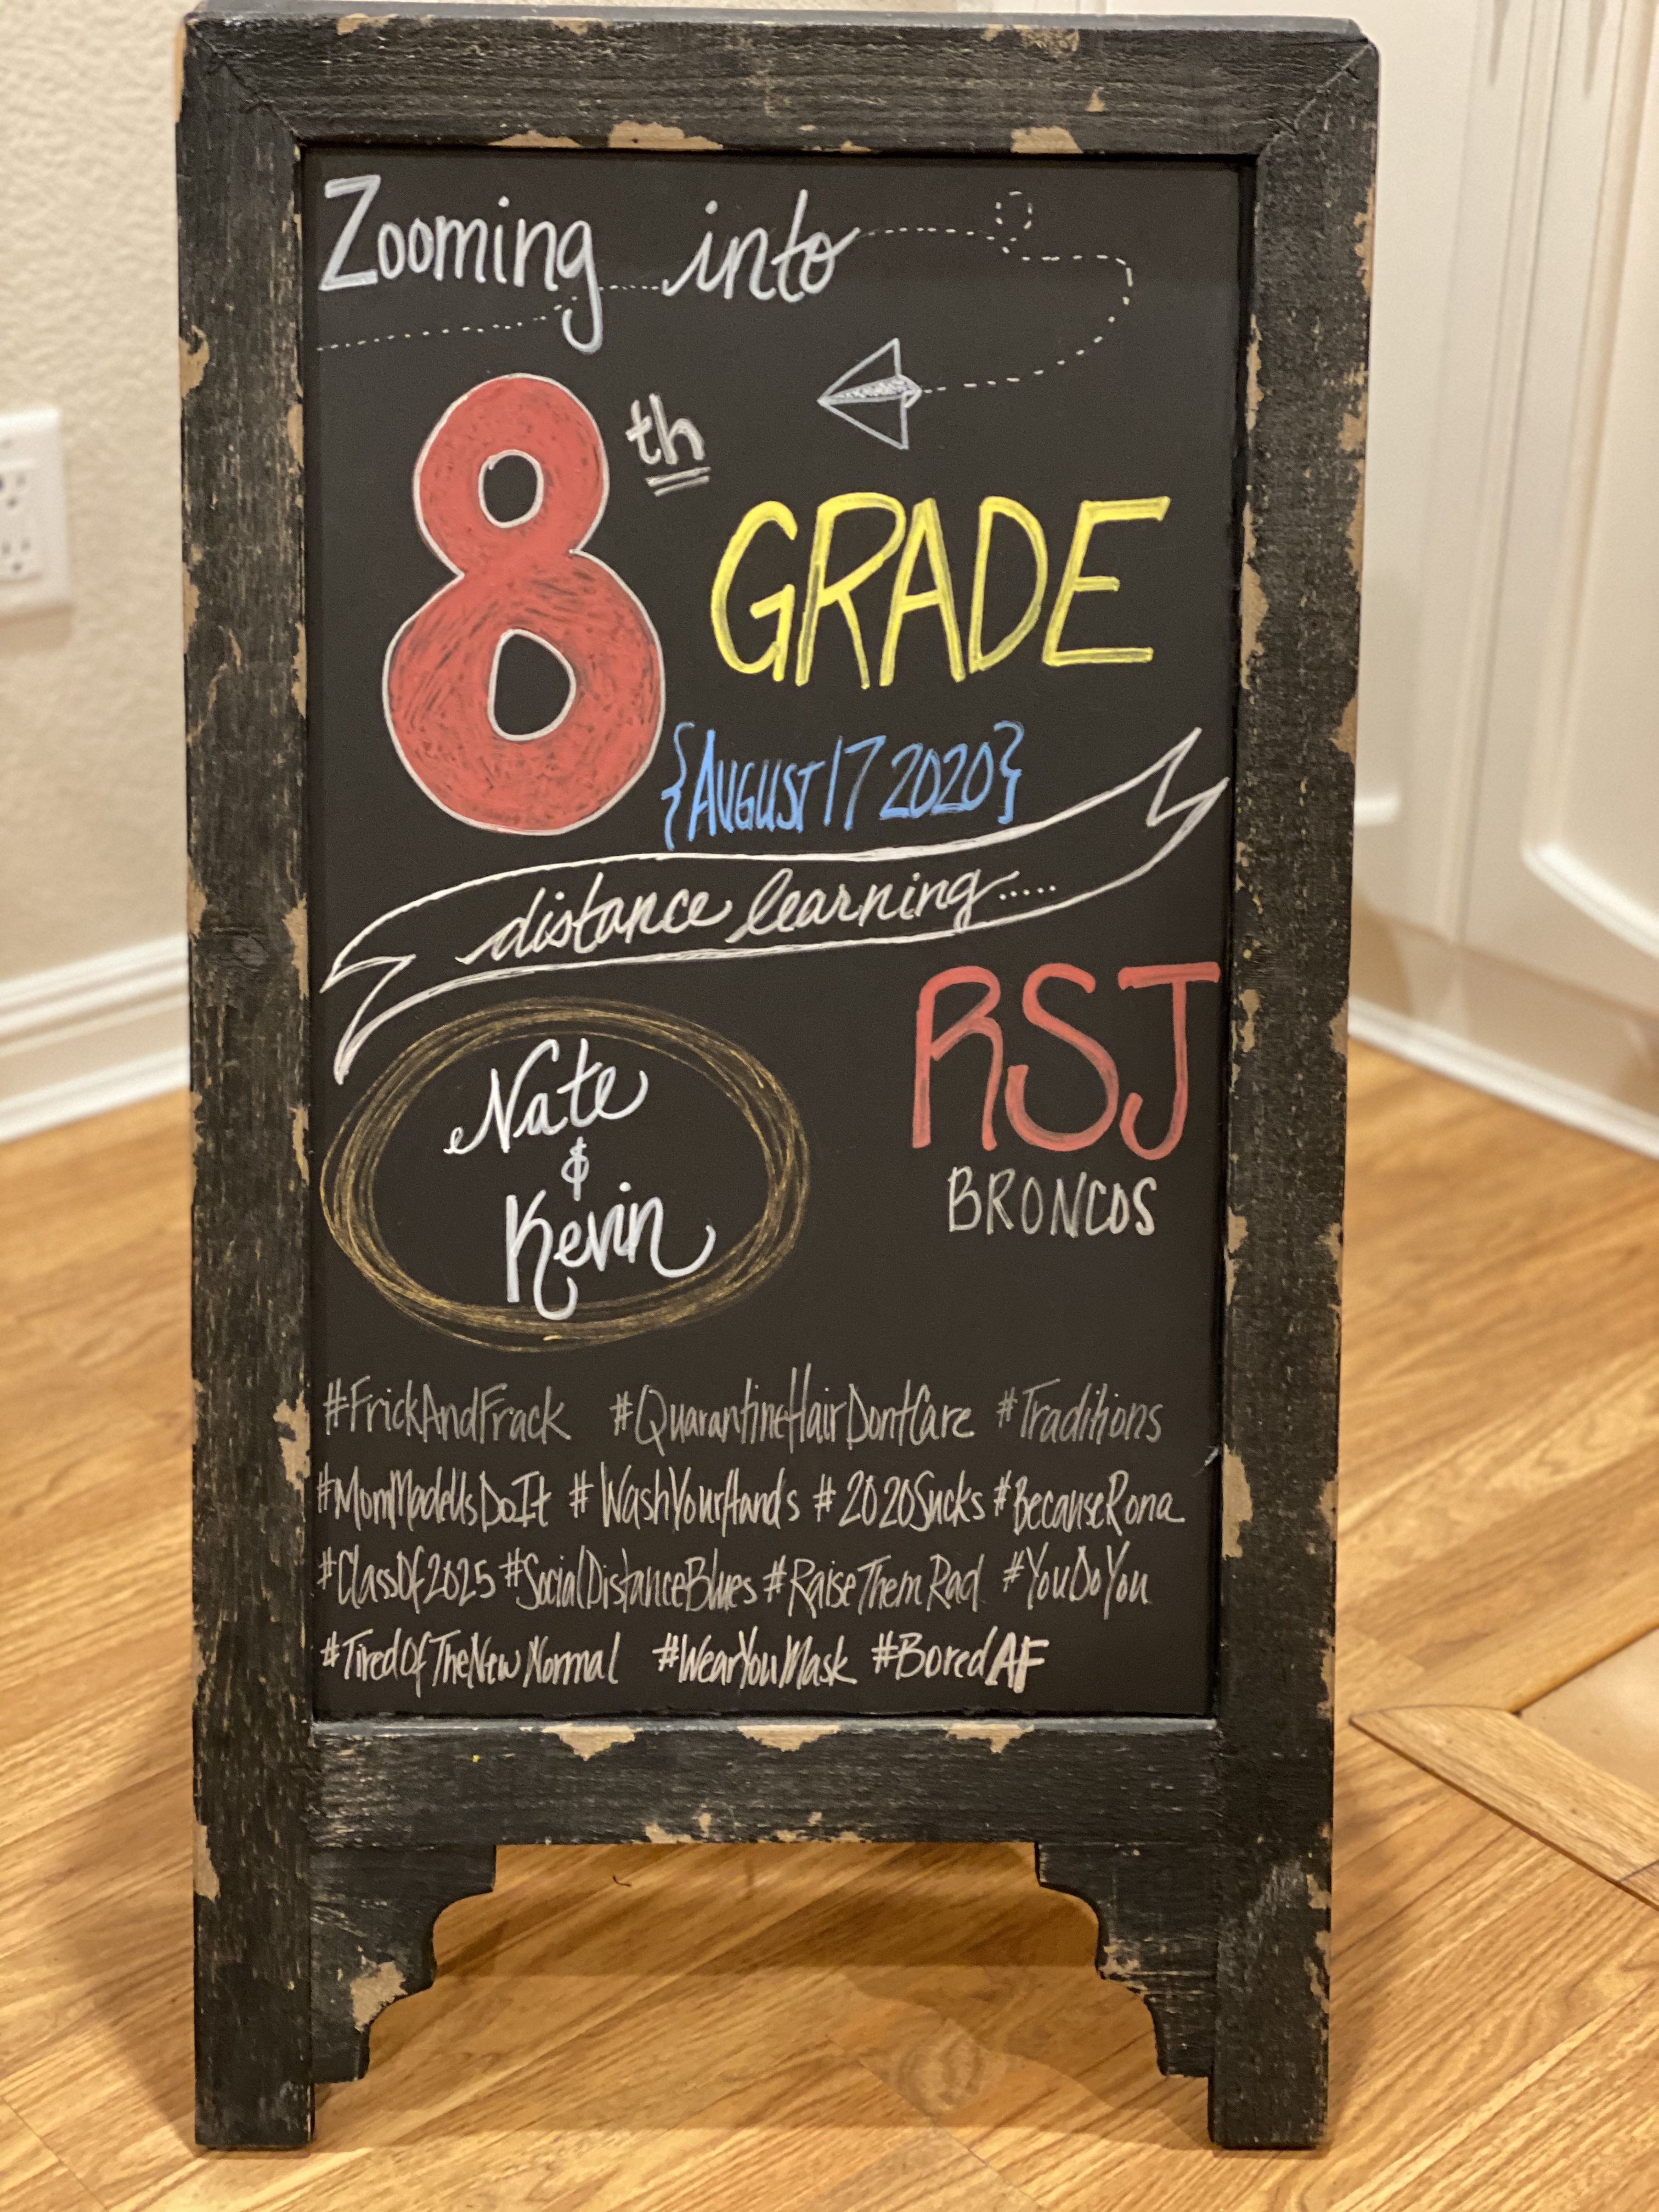 Zooming into
8th
GRADE
{AUGUST 17 2020}
distance learning.....
RSJ
BRONCOS
Nate
&
Kevin
#FrickAndFrack #QuarantineHairDontCare #Traditions
#MomMadeUsDoIt #WashYourHands #2020Sucks #BecauseRona
#ClassOf2025 #SocialDistanceBlues #RaiseThemRad #YouDoYou
#TiredOfTheNewNormal #WearYouMask #BoredAF